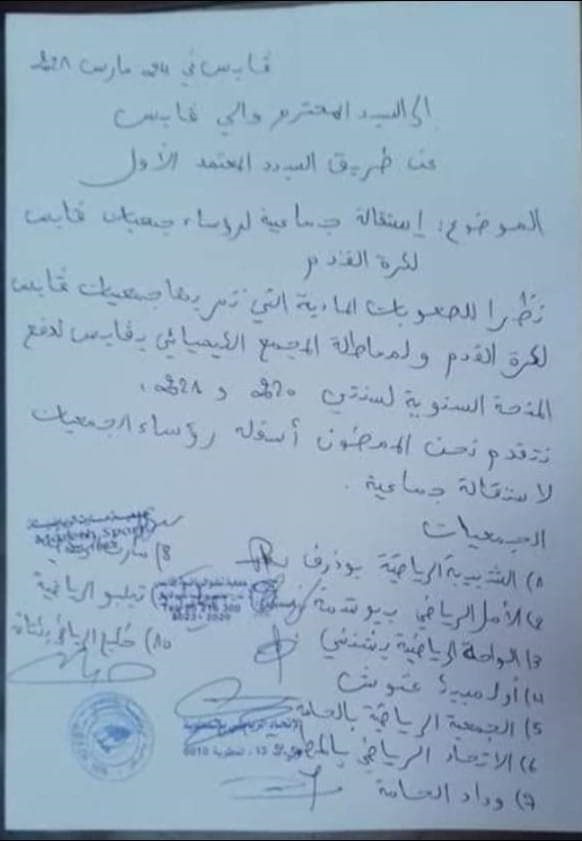 قابس في 24 مارس 2021
إلى السيد المحترم والي قابس
عن طريق السيد المعتمد الأول
الموضوع: إستقالة جماعية لرؤساء جمعيات قابس
لكرة القدم
نظرا للصعوبات المادية التي تمر بها جمعيات قابس
لكرة القدم ولمماطلة المجمع الكيميائي بقابس لدفع
المنحة السنوية لسنتي 2020 و 2021،
نتقدم نحن الممضون أسفله رؤساء الجمعيات
لاستقالة جماعية.
الجمعيات
1) الشبيبة الرياضية بوذرف
2) الأمل الرياضي ببوشمة
3) الواحة الرياضية بشنني
4) أولمبيك غنوش
5) الجمعية الرياضية بالحامة
6) الاتحاد الرياضي
7) وداد الحامة
8) مارث
تبلبو الرياضية
10) خليج الرياضي